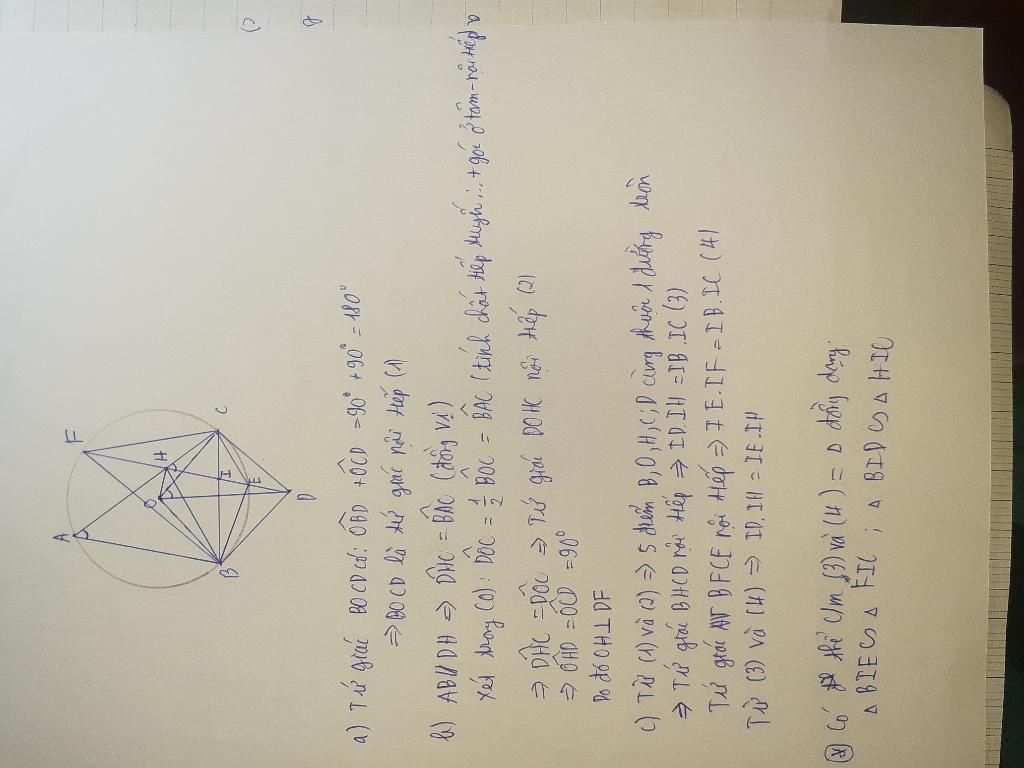 A
F
O
H
B
C
I
E
D
a) Tứ giác BOCD có: OBD + OCD = 90° + 90° = 180°
⇒ BOCD là tứ giác nội tiếp (1)
b) AB // DH ⇒ DHC = BAC (đồng vị)
Xét trong (O): DOC = 1/2 BOC = BAC (tính chất tiếp tuyến ... + góc ở tâm - nội tiếp)
⇒ DHC = DOC ⇒ Tứ giác DOHC nội tiếp (2)
⇒ OHD = OCD = 90°
Do đó OH ⊥ DF
c) Từ (1) và (2) ⇒ 5 điểm B, O, H, C, D cùng thuộc 1 đường tròn
⇒ Tứ giác BHCD nội tiếp ⇒ ID.IH = IB.IC (3)
Tứ giác BFCE nội tiếp ⇒ IE.IF = IB.IC (4)
Từ (3) và (4) ⇒ ID.IH = IE.IH
(*) Có thể c/m (3) và (4) = Δ đồng dạng:
Δ BIE ∽ Δ FIC ; Δ BID ∽ Δ HIC